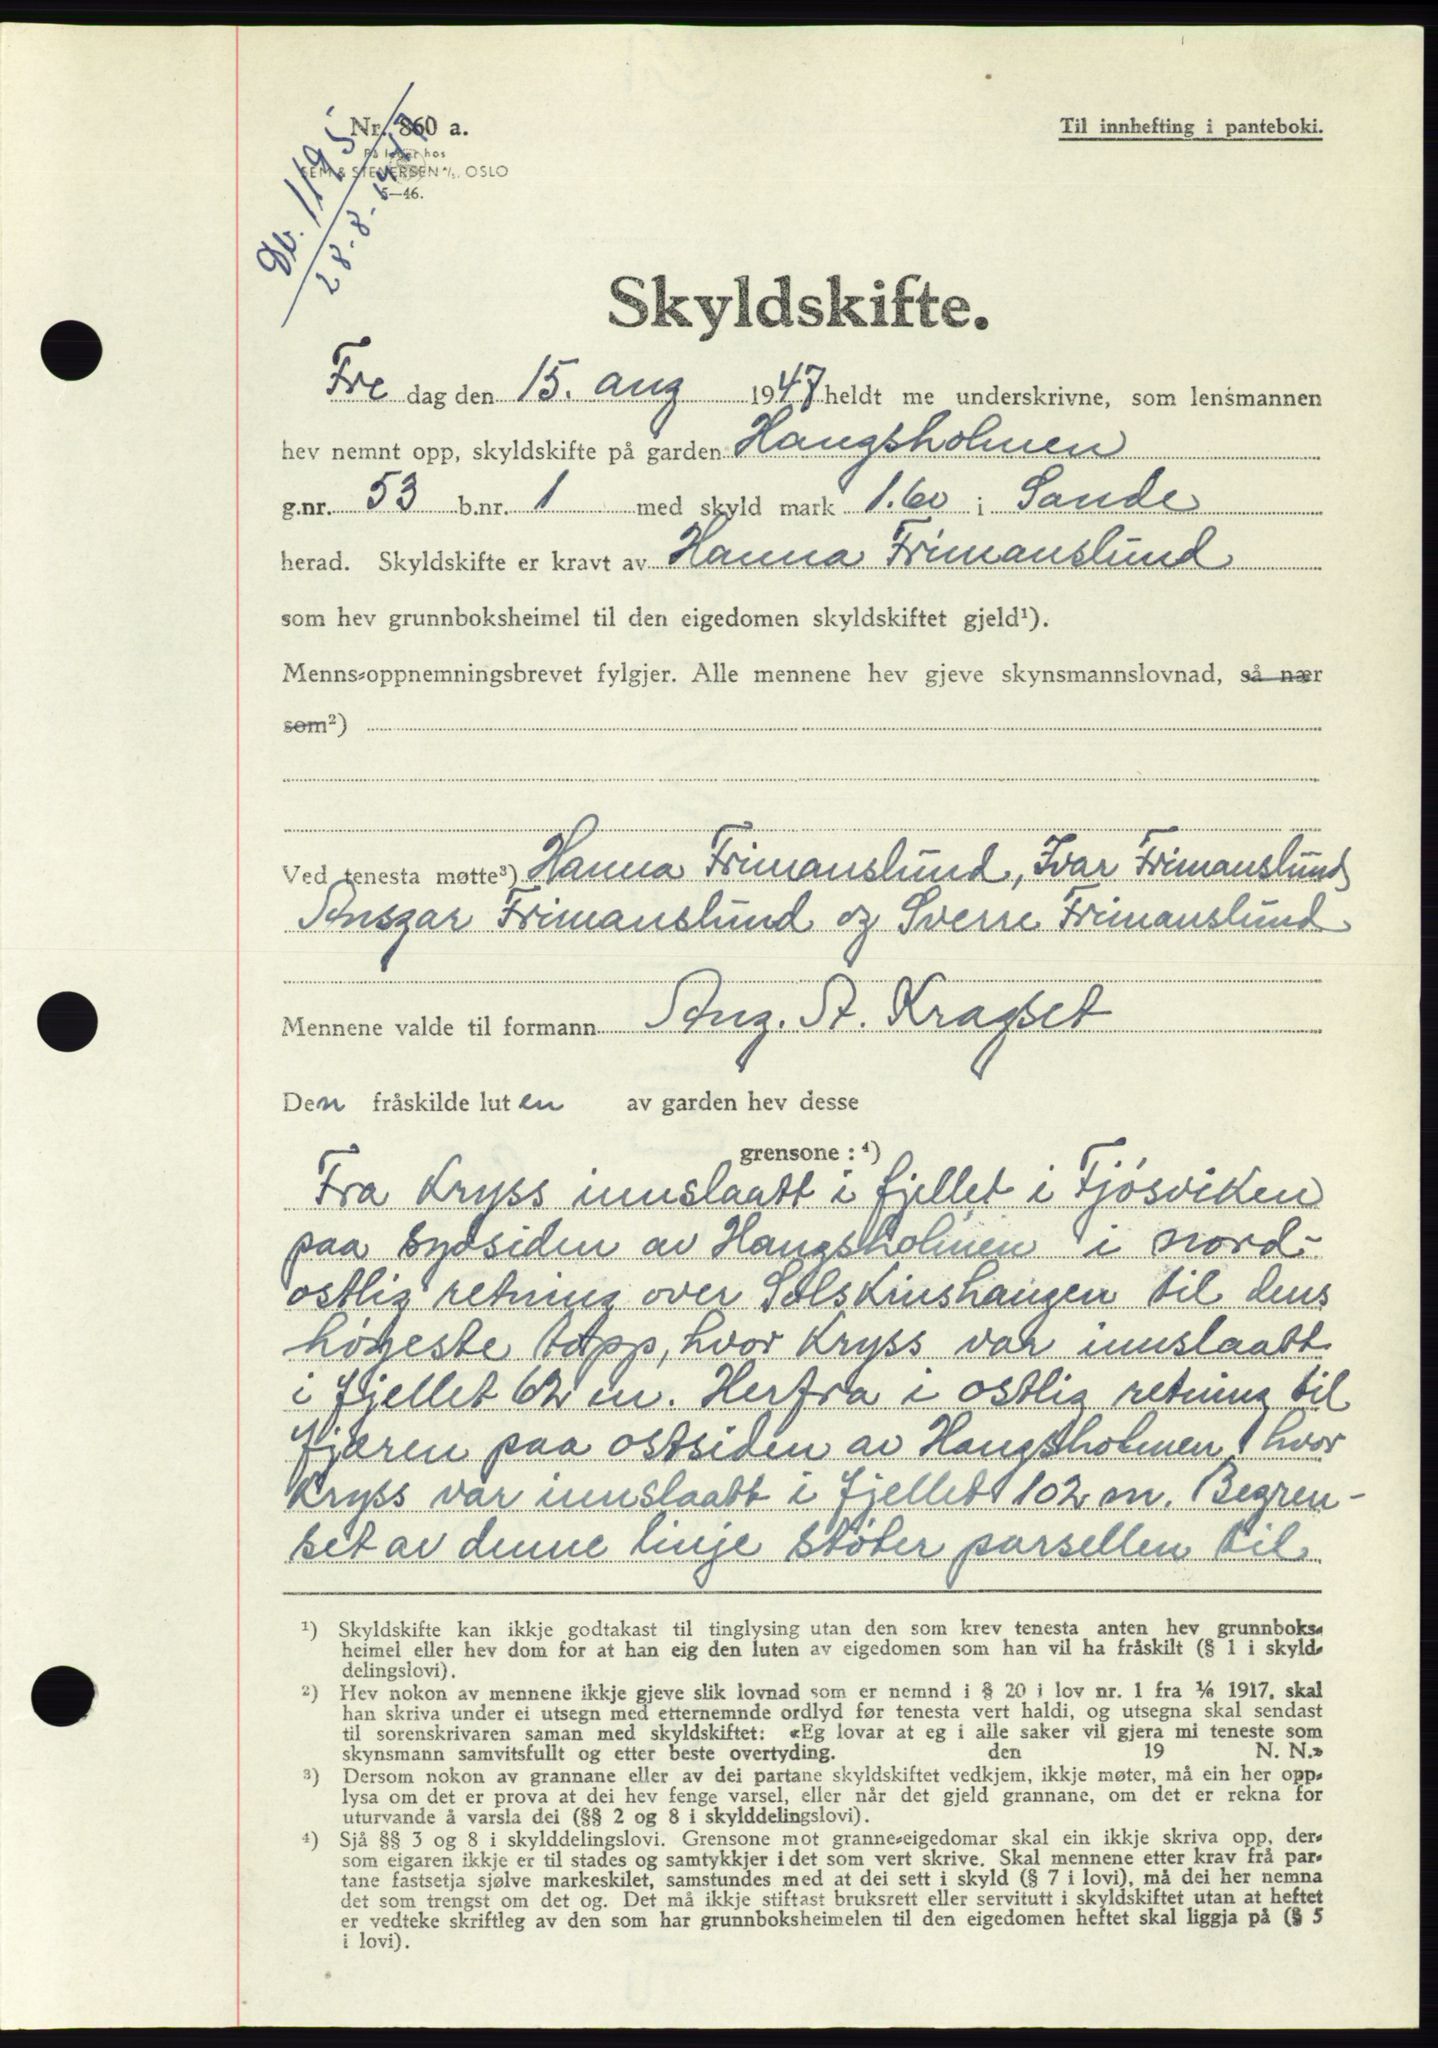 Db. 1195
28-8-1947
Nr. 860 a.
På lager hos
SEM & STENERSEN A/S, OSLO
5—46.
Til innhefting i panteboki.
Skyldskifte.
Fre dag den 15. aug 1947 heldt me underskrivne, som lensmannen
hev nemnt opp, skyldskifte på garden Haugsholmen
g.nr. 53 b.nr. 1 med skyld mark 1.60 i Sande
herad. Skyldskifte er kravt av Hanna Frimanslund
som hev grunnboksheimel til den eigedomen skyldskiftet gjeld¹).
Menns-oppnemningsbrevet fylgjer. Alle mennene hev gjeve skynsmannslovnad, så nær
som²)
Ved tenesta møtte³) Hanna Frimanslund, Ivar Frimanslund,
Ansgar Frimanslund og Sverre Frimanslund
Mennene valde til formann Aug. A. Kragset
Den fråskilde luten av garden hev desse
grensone : ⁴)
Fra Kryss innslaatt i fjellet i Fjósviken
paa sydsiden av Haugsholmen i nord-
ostlig retning over Solskinshaugen til dens
högeste topp, hvor Kryss var innslaatt
i fjellet 62 m. Herfra i ostlig retning til
fjæren paa ostsiden av Haugsholmen, hvor
Kryss var innslaatt i fjellet 102 m. Begren-
set av denne linje stöter parsellen til
¹) Skyldskifte kan ikkje godtakast til tinglysing utan den som krev tenesta anten hev grunnboks-
heimel eller hev dom for at han eig den luten av eigedomen som han vil ha fråskilt (§ 1 i skyld-
delingslovi).
²) Hev nokon av mennene ikkje gjeve slik lovnad som er nemnd i § 20 i lov nr. 1 fra ⅙ 1917, skal
han skriva under ei utsegn med etternemnde ordlyd før tenesta vert haldi, og utsegna skal sendast
til sorenskrivaren saman med skyldskiftet: «Eg lovar at eg i alle saker vil gjera mi teneste som
skynsmann samvitsfullt og etter beste overtyding. den 19 N. N.»
³) Dersom nokon av grannane eller av dei partane skyldskiftet vedkjem, ikkje møter, må ein her opp-
lysa om det er prova at dei hev fenge varsel, eller når det gjeld grannane, om det er rekna for
uturvande å varsla dei (§§ 2 og 8 i skylddelingslovi).
⁴) Sjå §§ 3 og 8 i skylddelingslovi. Grensone mot granne-eigedomar skal ein ikkje skriva opp, der-
som eigaren ikkje er til stades og samtykkjer i det som vert skrive. Skal mennene etter krav frå par-
tane fastsetja sjølve markeskilet, samstundes med at dei sett i skyld (§ 7 i lovi), må dei her nemna
det som trengst om det og. Det må ikkje stiftast bruksrett eller servitutt i skyldskiftet utan at heftet
er vedteke skriftleg av den som har grunnboksheimelen til den eigedomen heftet skal liggja på (§ 5
i lovi).